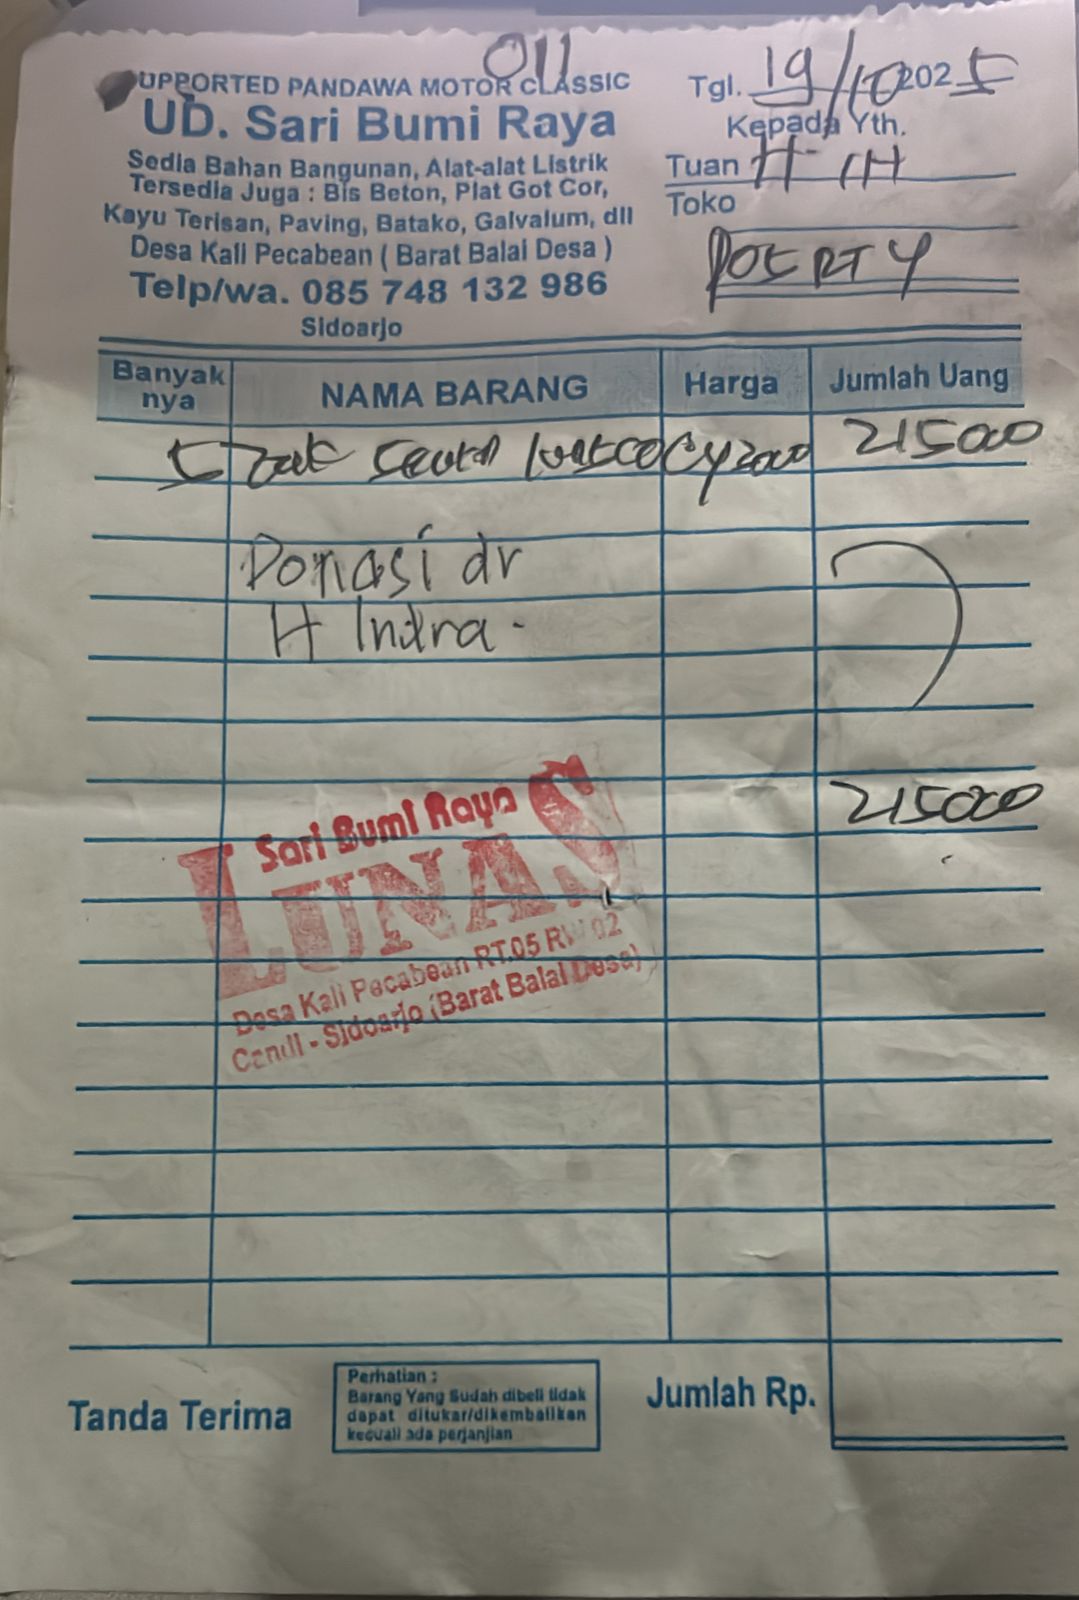 011
UPPORTED PANDAWA MOTOR CLASSIC
UD. Sari Bumi Raya
Sedia Bahan Bangunan, Alat-alat Listrik
Tersedia Juga : Bis Beton, Plat Got Cor,
Kayu Terisan, Paving, Batako, Galvalum, dll
Desa Kali Pecabean ( Barat Balai Desa )
Telp/wa. 085 748 132 986
Sidoarjo
Tgl. 19/10 2025
Kepada Yth.
Tuan H
Toko
RT 4
Banyak nya NAMA BARANG Harga Jumlah Uang
5 zak 215000
Donasi dr
H Indra.
215000
Sari Bumi Raya
LUNAS
Desa Kali Pecabean RT.05 RW 02
Candi - Sidoarjo (Barat Balai Desa)
Tanda Terima
Perhatian :
Barang Yang Sudah dibeli tidak
dapat ditukar/dikembalikan
kecuali ada perjanjian
Jumlah Rp.